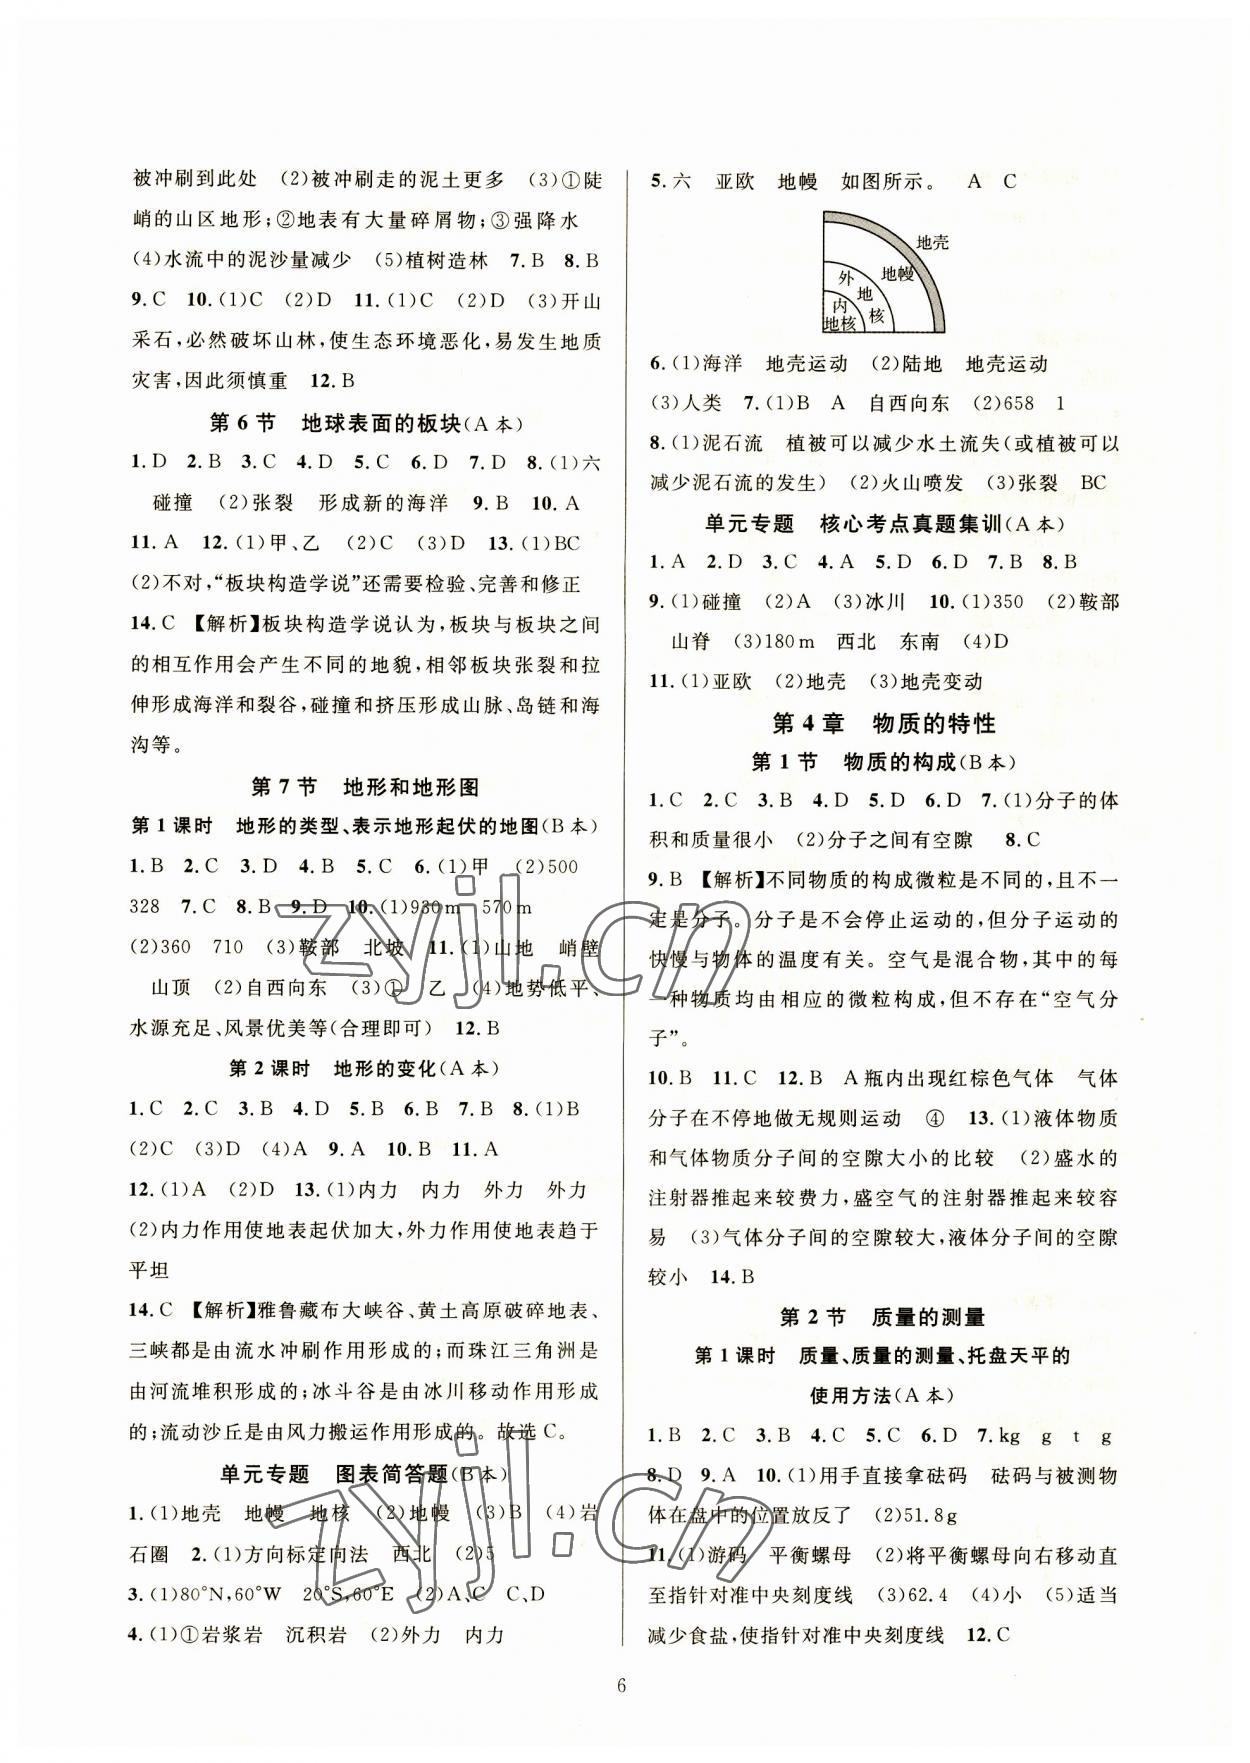 被冲刷到此处　(2)被冲刷走的泥土更多　(3)①陡
峭的山区地形;②地表有大量碎屑物;③强降水
(4)水流中的泥沙量减少　(5)植树造林　7.B　8.B
9.C　10.(1)C　(2)D　11.(1)C　(2)D　(3)开山
采石,必然破坏山林,使生态环境恶化,易发生地质
灾害,因此须慎重　12.B
第6节　地球表面的板块(A本)
1.D　2.B　3.C　4.D　5.C　6.D　7.D　8.(1)六
碰撞　(2)张裂　形成新的海洋　9.B　10.A
11.A　12.(1)甲、乙　(2)C　(3)D　13.(1)BC
(2)不对,“板块构造学说”还需要检验、完善和修正
14.C　【解析】板块构造学说认为,板块与板块之间
的相互作用会产生不同的地貌,相邻板块张裂和拉
伸形成海洋和裂谷,碰撞和挤压形成山脉、岛链和海
沟等。
第7节　地形和地形图
第1课时　地形的类型、表示地形起伏的地图(B本)
1.B　2.C　3.D　4.B　5.C　6.(1)甲　(2)500
328　7.C　8.B　9.D　10.(1)930m　570m
(2)360　710　(3)鞍部　北坡　11.(1)山地　峭壁
山顶　(2)自西向东　(3)①　乙　(4)地势低平、
水源充足、风景优美等(合理即可)　12.B
第2课时　地形的变化(A本)
1.C　2.C　3.B　4.D　5.B　6.B　7.B　8.(1)B
(2)C　(3)D　(4)A　9.A　10.B　11.A
12.(1)A　(2)D　13.(1)内力　内力　外力　外力
(2)内力作用使地表起伏加大,外力作用使地表趋于
平坦
14.C　【解析】雅鲁藏布大峡谷、黄土高原破碎地表、
三峡都是由流水冲刷作用形成的;而珠江三角洲是
由河流堆积形成的;冰斗谷是由冰川移动作用形成
的;流动沙丘是由风力搬运作用形成的。故选C。
单元专题　图表简答题(B本)
1.(1)地壳　地幔　地核　(2)地幔　(3)B　(4)岩
石圈　2.(1)方向标定向法　西北　(2)5
3.(1)80°N,60°W　20°S,60°E　(2)A、C　C、D
4.(1)①岩浆岩　沉积岩　(2)外力　内力
5.六　亚欧　地幔　如图所示。　A　C
地壳
地幔
外
地
核
内
地核
6.(1)海洋　地壳运动　(2)陆地　地壳运动
(3)人类　7.(1)B　A　自西向东　(2)658　1
8.(1)泥石流　植被可以减少水土流失(或植被可以
减少泥石流的发生)　(2)火山喷发　(3)张裂　BC
单元专题　核心考点真题集训(A本)
1.A　2.D　3.C　4.A　5.D　6.D　7.B　8.B
9.(1)碰撞　(2)A　(3)冰川　10.(1)350　(2)鞍部
山脊　(3)180m　西北　东南　(4)D
11.(1)亚欧　(2)地壳　(3)地壳变动
第4章　物质的特性
第1节　物质的构成(B本)
1.C　2.C　3.B　4.D　5.D　6.D　7.(1)分子的体
积和质量很小　(2)分子之间有空隙　8.C
9.B　【解析】不同物质的构成微粒是不同的,且不一
定是分子。分子是不会停止运动的,但分子运动的
快慢与物体的温度有关。空气是混合物,其中的每
一种物质均由相应的微粒构成,但不存在“空气分
子”。
10.B　11.C　12.B　A瓶内出现红棕色气体　气体
分子在不停地做无规则运动　④　13.(1)液体物质
和气体物质分子间的空隙大小的比较　(2)盛水的
注射器推起来较费力,盛空气的注射器推起来较容
易　(3)气体分子间的空隙较大,液体分子间的空隙
较小　14.B
第2节　质量的测量
第1课时　质量、质量的测量、托盘天平的
使用方法(A本)
1.B　2.C　3.B　4.C　5.C　6.D　7.kg　g　t　g
8.D　9.A　10.(1)用手直接拿砝码　砝码与被测物
体在盘中的位置放反了　(2)51.8g
11.(1)游码　平衡螺母　(2)将平衡螺母向右移动直
至指针对准中央刻度线　(3)62.4　(4)小　(5)适当
减少食盐,使指针对准中央刻度线　12.C
zyjl.cn
zyjl.cn
6